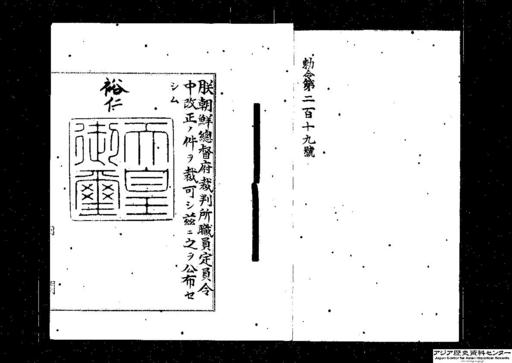 勅令第二百十九號
朕朝鮮總督府裁判所職員定員令
中改正ノ件ヲ裁可シ茲ニ之ヲ公布セ
シム
裕仁
天皇
御璽
アジア歴史資料センター
Japan Center for Asian Historical Records